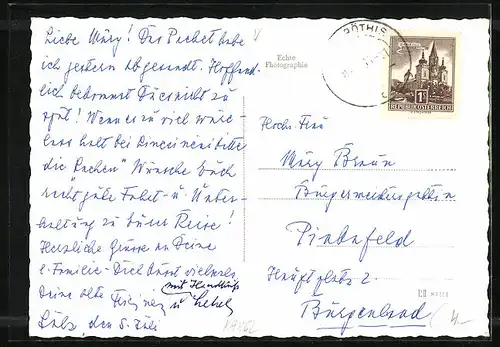 Liebe Märy! Das Packet habe
ich gestern abgesandt. Hoffent-
lich bekommst Du es nicht zu
spät! Wenn es zu viel wäre -
lass halt bei Dir
die "Sachen" Wünsche Euch
recht gute Fahrt - u. Unter-
haltung zu Eurer Reise!
Herzliche Grüsse an Deine
l. Familie - Dich küsst vielmals
Deine alte
mit Handkuss
u
den 5. Juli
Echte
Photographie
RÖTHIS
1S
REPUBLIK ÖSTERREICH
Hochw. Frau
Märy Braun
Bürgermeistersgattin
Pinkafeld
Hauptplatz 2
Burgenland